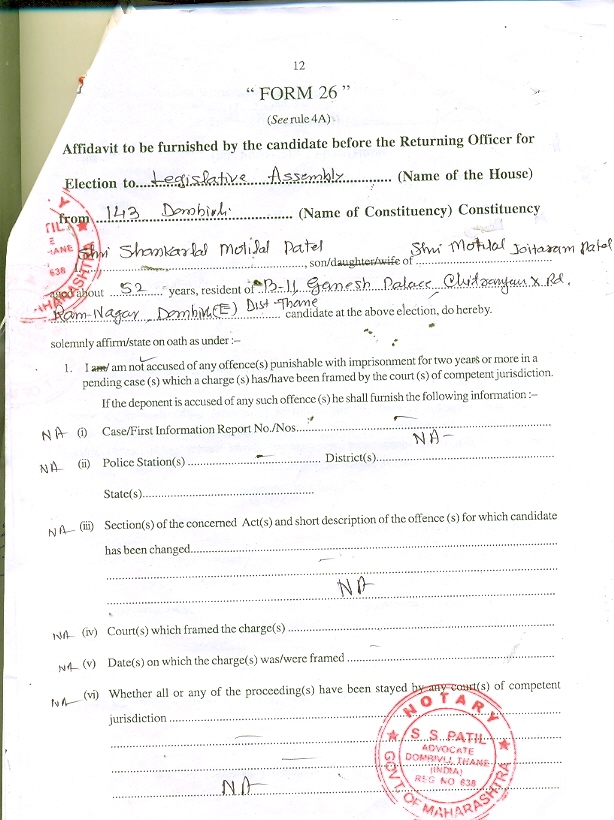 12
“ FORM 26 ”
(See rule 4A)
Affidavit to be furnished by the candidate before the Returning Officer for
Election to....Legislative Assembly............ (Name of the House)
from ...143 Dombivli............. (Name of Constituency) Constituency
Shri Shankarlal Motilal Patel Shri Motilal Joitaram Patel
I..........................................., son/daughter/wife of ...........................
aged about ...52... years, resident of B-11, Ganesh Palace, X Rd.
Ram-Nagar, Dombivli(E) Dist Thane candidate at the above election, do hereby.
solemnly affirm/state on oath as under :–
1. I am/ am not accused of any offence(s) punishable with imprisonment for two years or more in a
pending case (s) which a charge (s) has/have been framed by the court (s) of competent jurisdiction.
If the deponent is accused of any such offence (s) he shall furnish the following information :–
NA (i) Case/First Information Report No./Nos...............................................
NA (ii) Police Station(s) ............................ District(s)....NA............................
State(s)..............................................
NA (iii) Section(s) of the concerned Act(s) and short description of the offence (s) for which candidate
has been changed..............................................
NA
NA (iv) Court(s) which framed the charge(s) ..............................................
NA (v) Date(s) on which the charge(s) was/were framed ..............................................
NA (vi) Whether all or any of the proceeding(s) have been stayed by any court(s) of competent
jurisdiction ..............................................
NA
NOTARY
S. S. PATIL
ADVOCATE
DOMBIVLI, THANE
(INDIA)
REG NO 638
GOVT OF MAHARASHTRA
TIL
THANE
638
MAHARASHTRA